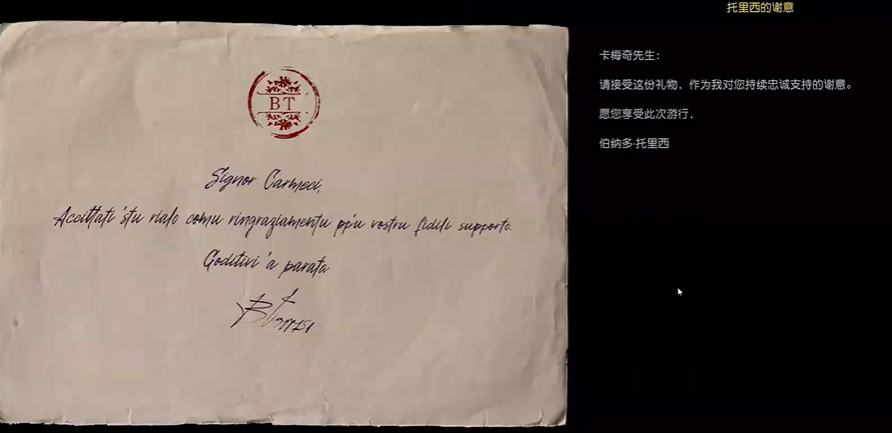 托里西的谢意
BT
Signor Carmeci,
Accittati 'stu rialo comu ringraziamentu ppu vostru fidili supporto.
Goditivi 'a parata
卡梅奇先生：
请接受这份礼物，作为我对您持续忠诚支持的谢意。
愿您享受此次游行，
伯纳多·托里西